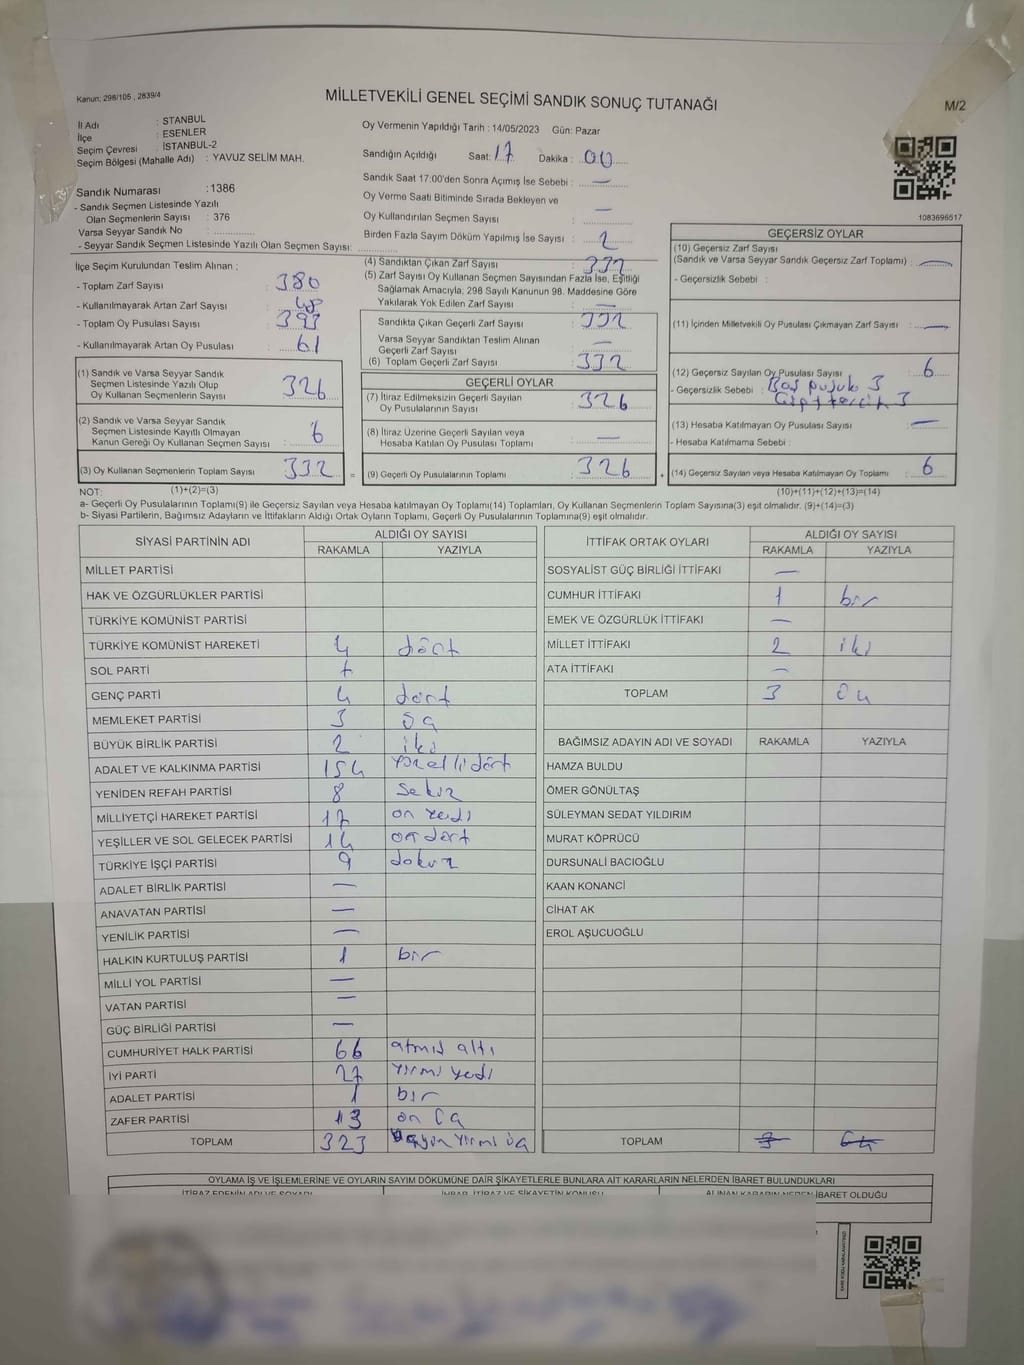 Kanun; 298/105 , 2839/4
MİLLETVEKİLİ GENEL SEÇİMİ SANDIK SONUÇ TUTANAĞI
M/2
İl Adı : STANBUL
İlçe : ESENLER
Seçim Çevresi : İSTANBUL-2
Seçim Bölgesi (Mahalle Adı) : YAVUZ SELİM MAH.
Sandık Numarası :1386
- Sandık Seçmen Listesinde Yazılı
Olan Seçmenlerin Sayısı : 376
Varsa Seyyar Sandık No
- Seyyar Sandık Seçmen Listesinde Yazılı Olan Seçmen Sayısı:
Oy Vermenin Yapıldığı Tarih : 14/05/2023 Gün: Pazar
Sandığın Açıldığı Saat: 17 Dakika : 00
Sandık Saat 17:00'den Sonra Açımış İse Sebebi : —
Oy Verme Saati Bitiminde Sırada Bekleyen ve
Oy Kullandırılan Seçmen Sayısı : —
Birden Fazla Sayım Döküm Yapılmış İse Sayısı : 2
1083696517
İlçe Seçim Kurulundan Teslim Alınan ;
- Toplam Zarf Sayısı : 380
- Kullanılmayarak Artan Zarf Sayısı : 48
- Toplam Oy Pusulası Sayısı : 393
- Kullanılmayarak Artan Oy Pusulası : 61
(1) Sandık ve Varsa Seyyar Sandık
Seçmen Listesinde Yazılı Olup
Oy Kullanan Seçmenlerin Sayısı : 326
(2) Sandık ve Varsa Seyyar Sandık
Seçmen Listesinde Kayıtlı Olmayan
Kanun Gereği Oy Kullanan Seçmen Sayısı : 6
(3) Oy Kullanan Seçmenlerin Toplam Sayısı : 332
(4) Sandıktan Çıkan Zarf Sayısı : 332
(5) Zarf Sayısı Oy Kullanan Seçmen Sayısından Fazla İse, Eşitliği
Sağlamak Amacıyla; 298 Sayılı Kanunun 98. Maddesine Göre
Yakılarak Yok Edilen Zarf Sayısı : —
Sandıkta Çıkan Geçerli Zarf Sayısı : 332
Varsa Seyyar Sandıktan Teslim Alınan
Geçerli Zarf Sayısı : —
(6) Toplam Geçerli Zarf Sayısı : 332
GEÇERLİ OYLAR
(7) İtiraz Edilmeksizin Geçerli Sayılan
Oy Pusulalarının Sayısı : 326
(8) İtiraz Üzerine Geçerli Sayılan veya
Hesaba Katılan Oy Pusulası Toplamı : —
= (9) Geçerli Oy Pusulalarının Toplamı : 326 +
GEÇERSİZ OYLAR
(10) Geçersiz Zarf Sayısı
(Sandık ve Varsa Seyyar Sandık Geçersiz Zarf Toplamı) : —
- Geçersizlik Sebebi :
(11) İçinden Milletvekili Oy Pusulası Çıkmayan Zarf Sayısı : —
(12) Geçersiz Sayılan Oy Pusulası Sayısı : 6
- Geçersizlik Sebebi : 3
3
(13) Hesaba Katılmayan Oy Pusulası Sayısı : —
- Hesaba Katılmama Sebebi :
(14) Geçersiz Sayılan veya Hesaba Katılmayan Oy Toplamı : 6
NOT: (1)+(2)=(3) (10)+(11)+(12)+(13)=(14)
a- Geçerli Oy Pusulalarının Toplamı(9) ile Geçersiz Sayılan veya Hesaba katılmayan Oy Toplamı(14) Toplamları, Oy Kullanan Seçmenlerin Toplam Sayısına(3) eşit olmalıdır. (9)+(14)=(3)
b- Siyasi Partilerin, Bağımsız Adayların ve İttifakların Aldığı Ortak Oyların Toplamı, Geçerli Oy Pusulalarının Toplamına(9) eşit olmalıdır.
SİYASİ PARTİNİN ADI ALDIĞI OY SAYISI
RAKAMLA YAZIYLA
MİLLET PARTİSİ
HAK VE ÖZGÜRLÜKLER PARTİSİ
TÜRKİYE KOMÜNİST PARTİSİ
TÜRKİYE KOMÜNİST HAREKETİ 4 dört
SOL PARTİ
GENÇ PARTİ 4 dört
MEMLEKET PARTİSİ 3 üç
BÜYÜK BİRLİK PARTİSİ 2 iki
ADALET VE KALKINMA PARTİSİ 154 yüzellidört
YENİDEN REFAH PARTİSİ 8 sekiz
MİLLİYETÇİ HAREKET PARTİSİ 17 on yedi
YEŞİLLER VE SOL GELECEK PARTİSİ 14 on dört
TÜRKİYE İŞÇİ PARTİSİ 9 dokuz
ADALET BİRLİK PARTİSİ —
ANAVATAN PARTİSİ —
YENİLİK PARTİSİ —
HALKIN KURTULUŞ PARTİSİ 1 bir
MİLLİ YOL PARTİSİ —
VATAN PARTİSİ —
GÜÇ BİRLİĞİ PARTİSİ —
CUMHURİYET HALK PARTİSİ 66 atmış altı
İYİ PARTİ 27 yirmi yedi
ADALET PARTİSİ 1 bir
ZAFER PARTİSİ 13 on üç
TOPLAM 323 üçyüz yirmi üç
İTTİFAK ORTAK OYLARI ALDIĞI OY SAYISI
RAKAMLA YAZIYLA
SOSYALİST GÜÇ BİRLİĞİ İTTİFAKI —
CUMHUR İTTİFAKI 1 bir
EMEK VE ÖZGÜRLÜK İTTİFAKI —
MİLLET İTTİFAKI 2 iki
ATA İTTİFAKI —
TOPLAM 3 üç
BAĞIMSIZ ADAYIN ADI VE SOYADI RAKAMLA YAZIYLA
HAMZA BULDU
ÖMER GÖNÜLTAŞ
SÜLEYMAN SEDAT YILDIRIM
MURAT KÖPRÜCÜ
DURSUNALİ BACIOĞLU
KAAN KONANCİ
CİHAT AK
EROL AŞUCUOĞLU
TOPLAM
OYLAMA İŞ VE İŞLEMLERİNE VE OYLARIN SAYIM DÖKÜMÜNE DAİR ŞİKAYETLERLE BUNLARA AİT KARARLARIN NELERDEN İBARET BULUNDUKLARI
İTİRAZ EDENİN ADI VE SOYADI İHBAR, İTİRAZ VE ŞİKAYETİN KONUSU ALINAN KARARIN NEDEN İBARET OLDUĞU